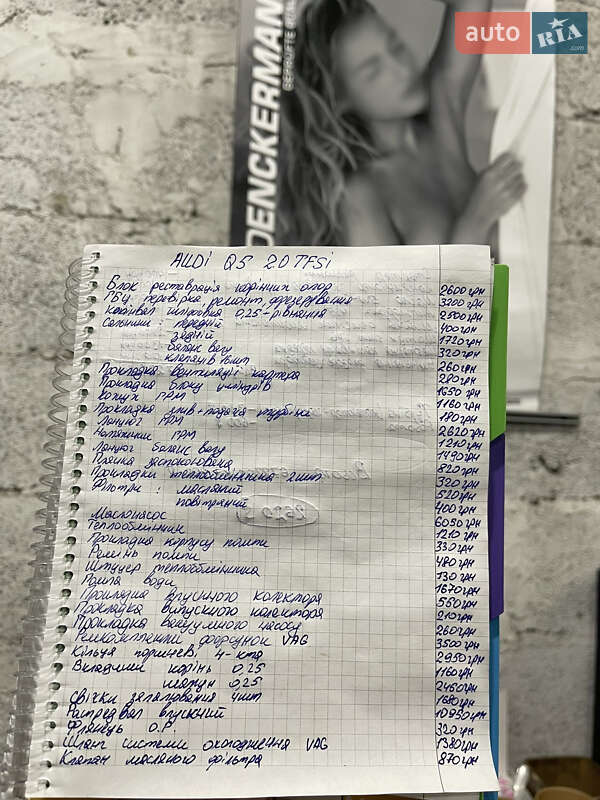 auto RIA
.com
DENCKERMANN
GEPRÜFTE
AUDI Q5 2.0 TFSi
Блок реставрація корінних опор 2600 грн
ГБЦ перевірка, ремонт, фрезерування 3200 грн
Колінвал шліфовка 0,25 - рівняння 2500 грн
Сальники : передній 400 грн
задній 1720 грн
баланс валу 320 грн
клапанів 16шт
Прокладка вентиляції картера 260 грн
Прокладка блоку циліндрів 280 грн
Кожух ГРМ 1650 грн
Прокладка злив-подача турбіни 1160 грн
Ланцюг ГРМ 180 грн
Натяжник ГРМ 2620 грн
1210 грн
Ланцюг баланс валу 1490 грн
Планка заспокоювача 820 грн
Прокладки теплообмінника 2шт 320 грн
Фільтри : масляний 520 грн
повітряний 400 грн
Маслонасос 6050 грн
Теплообмінник 1210 грн
Прокладка корпусу помпи 330 грн
Ремінь помпи 480 грн
Штуцер теплообмінника 130 грн
Помпа води 1670 грн
Прокладка впускного колектора 560 грн
Прокладка випускного колектора 210 грн
Прокладка вакуумного насоса 260 грн
Ремкомплект форсунок VAG 3500 грн
Кільця поршневі 4-кта 2950 грн
Вкладиши корінь 0,25 1160 грн
шатун 0,25 2460 грн
Свічки запалювання 4шт 1680 грн
Розпредвал впускний 10950 грн
Фланець О.Р. 320 грн
Шланг системи охолодження VAG 1380 грн
Клапан масляного фільтра 870 грн